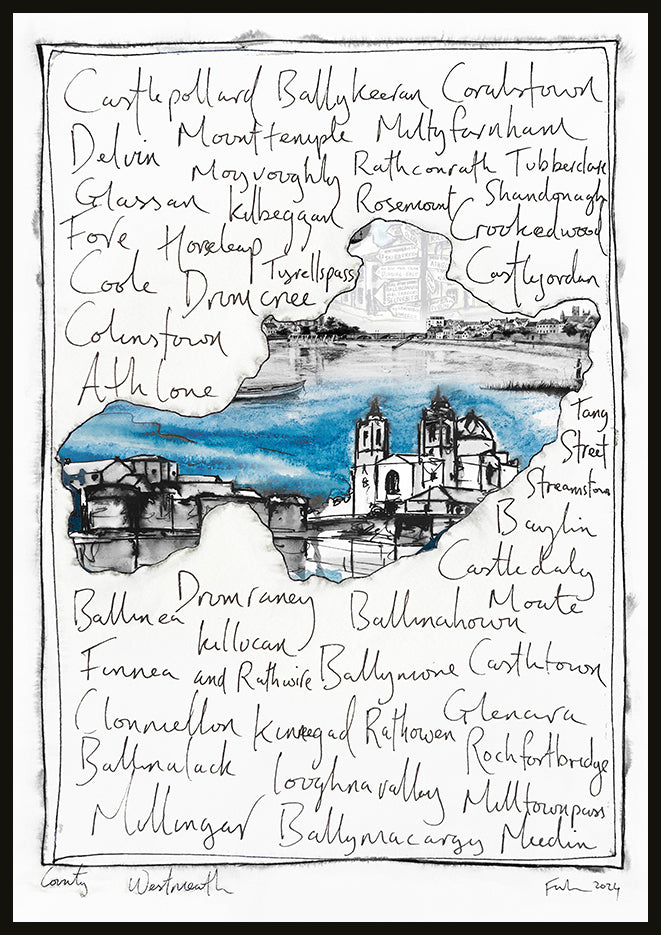 Castlepollard Ballykeeran Coralstown
Delvin Mounttemple Multyfarnham
Moyvoughly Rathconrath Tubberclare
Glassan Kilbeggan Rosemount Shandonagh
Fore Horseleap Crookedwood
Coole Drumcree Tyrellspass Castlejordan
Colinstown
Athlone
Tang
Street
Streamstown
Baylin
Castledaly
Ballinea Drumraney Ballinahown Moate
Killucan
Finnea and Rathwire Ballymore Castletown
Clonmellon Kinnegad Rathowen Glenavra
Ballinalack Rochfortbridge
Loughnavalley Milltownpass
Mullingar Ballymacargy Meedin
County Westmeath
2024